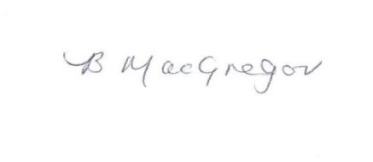 B MacGregor